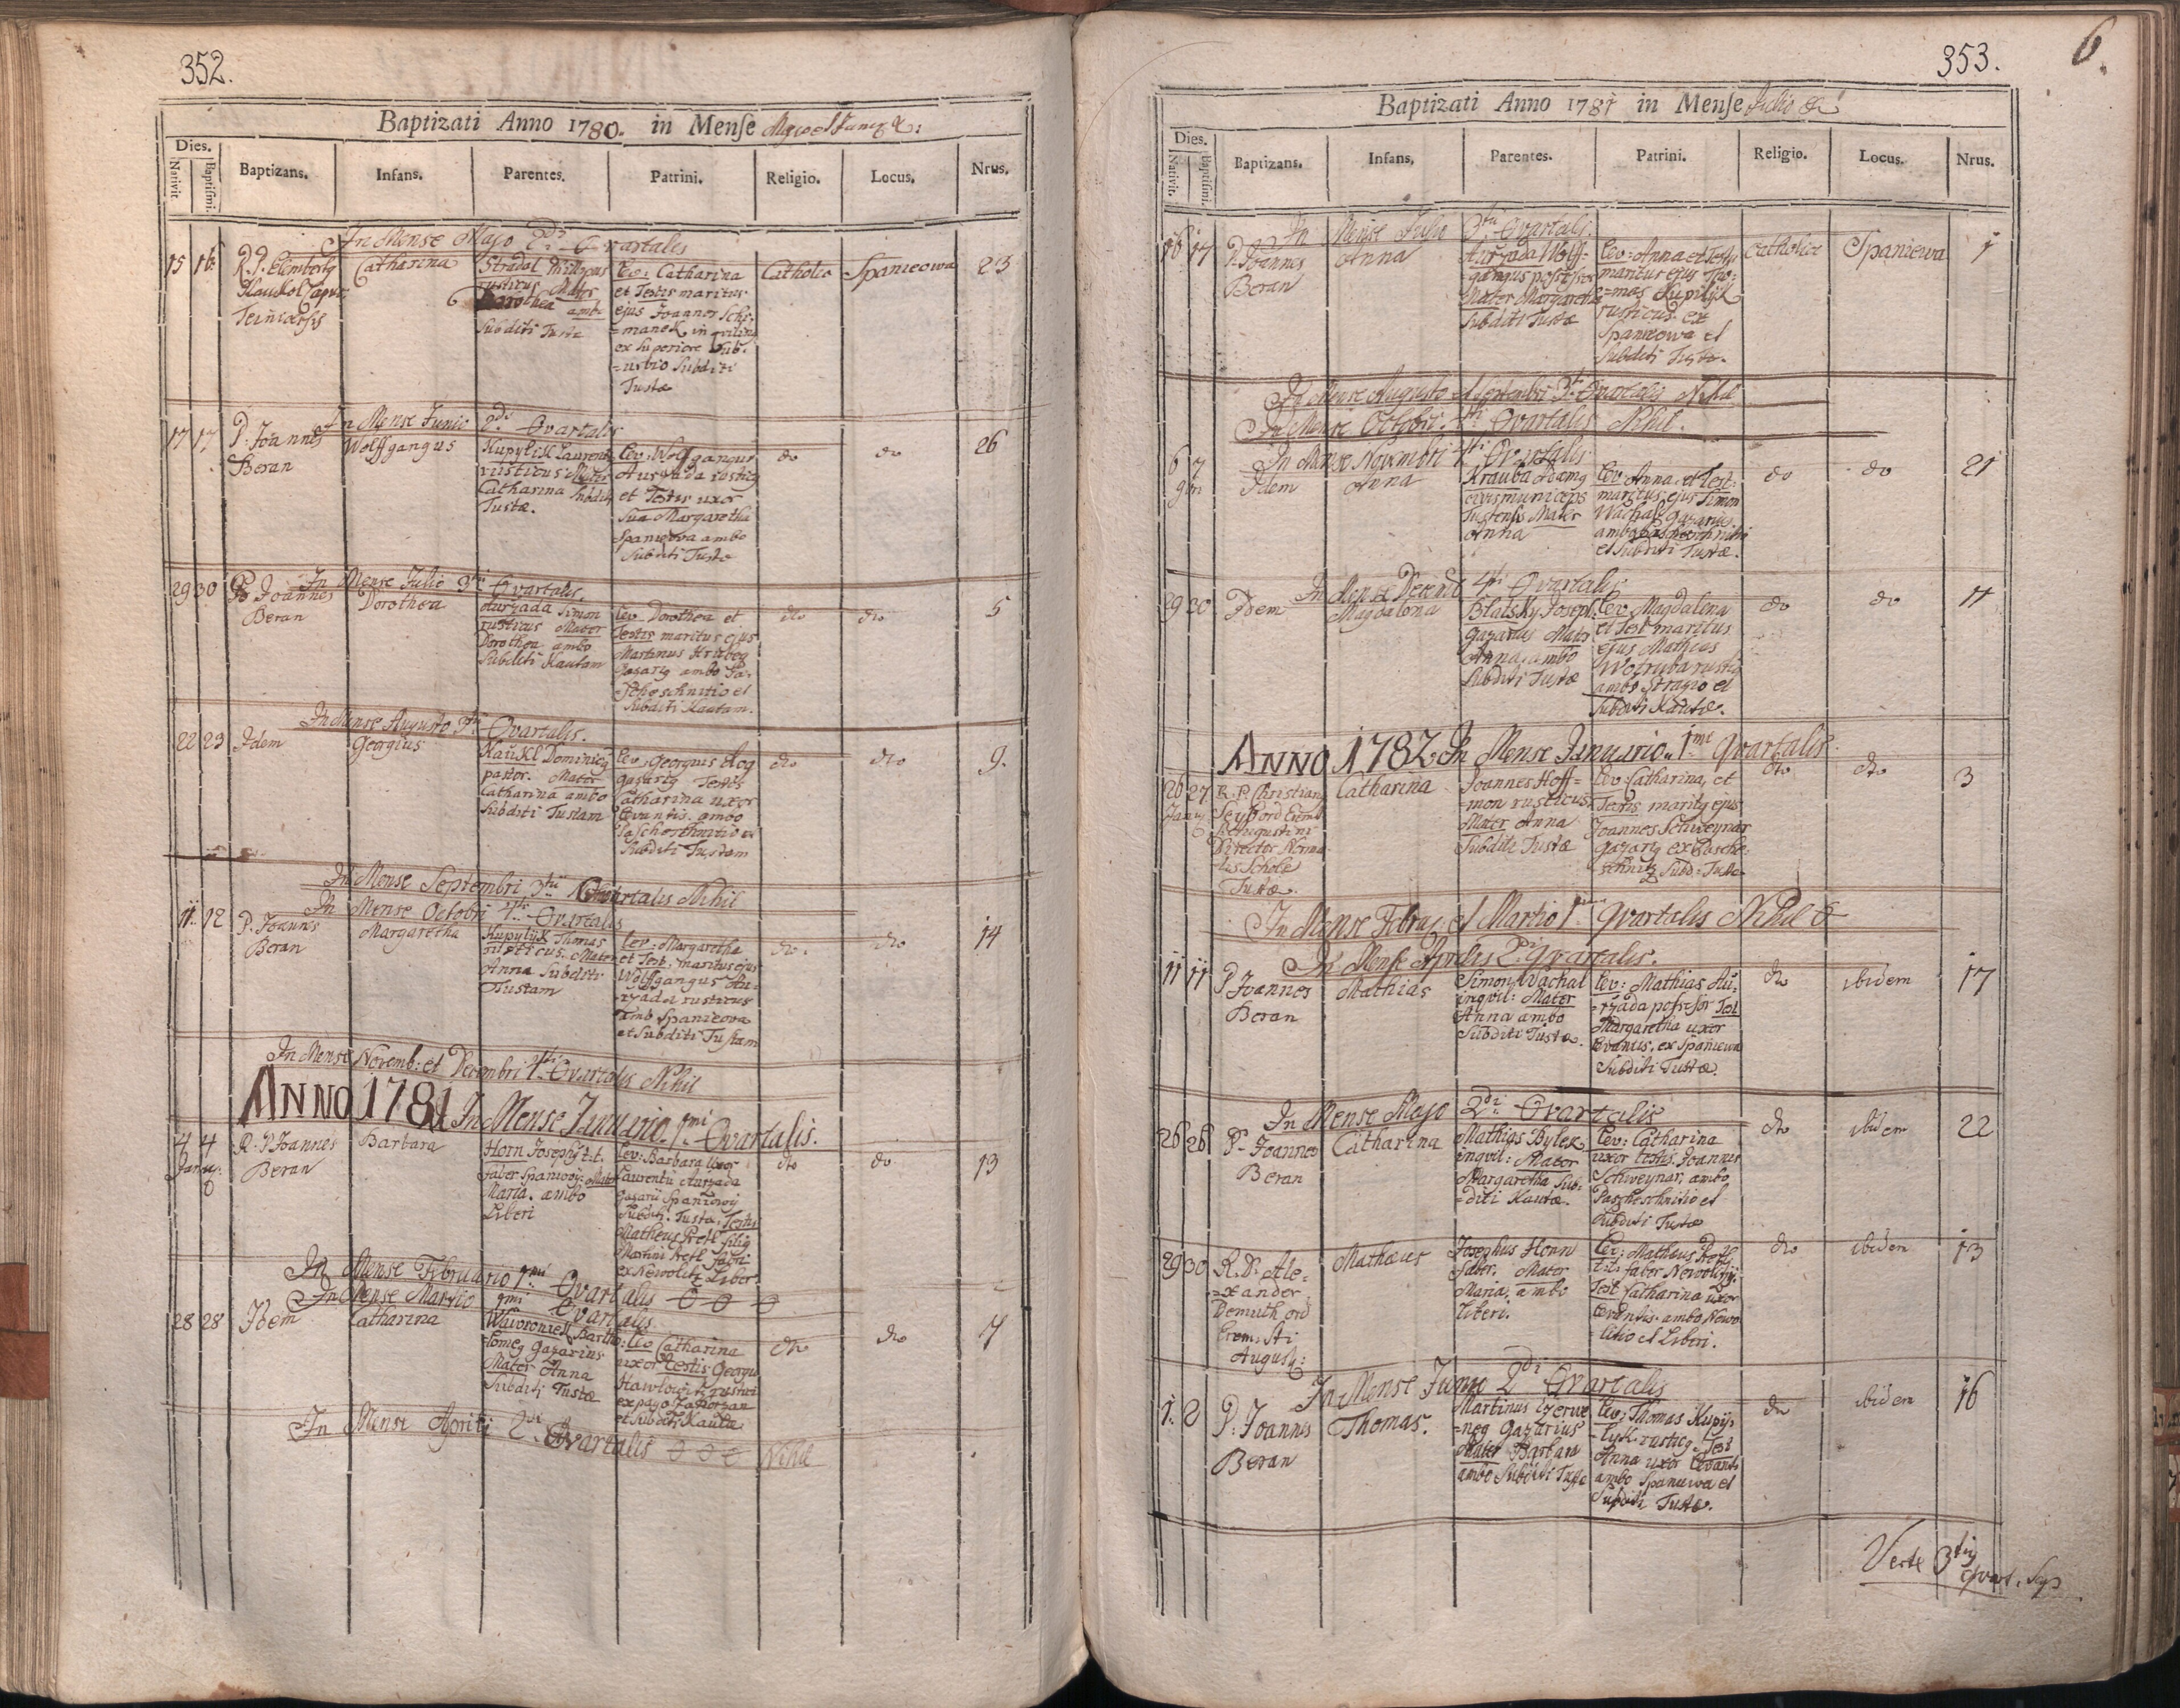 352.
Baptizati Anno 1780. in Mense Majo et
Dies.
Nativit
Baptismi.
Baptizans.
Infans.
Parentes.
Patrini.
Religio.
Locus.
Nrus.
In Mense Majo 2di Qvartalis
15 16 R. P. Catharina Stradal rusticus Mater Dorothea ambo Subditi Tustæ
Lev: Catharina et Testis maritus ejus Joannes Schimanek, inquilinus ex superiore Sub=
=urbio Subditi
Tustæ
Catholica Spanieowa 23
In Mense Junio 2di Qvartalis
17 17 P. Joannes
Beran
Wolffgangus
Kupylik Laurent
rusticus Mater
Catharina Subditi
Tustæ.
Lev: Wolffgangus
Aurzada rusticq
et Testis uxor
Sua Margaretha
Spaniowa ambo
Subditi Tustæ
do do 26
In Mense Julio 3tii Qvartalis.
29 30 P. Joannes
Beran
Dorothea
Aurzada Simon
rusticus Mater
Dorothea ambo
Subditi Kautam
Lev Dorothea et
Testis maritus ejus
Martinus
Gazarq ambo Pa=
=schoschnitio et
Subditi Kautam.
dto dto 5
In Mense Augusto 3tii Qvartalis.
22 23 Idem
Georgius
Kaukl Dominicq
pastor. Mater
Catharina ambo
Subditi Tustam
Lev. Georgius
gazarq Testis
Catharina uxor
Levantis. ambo
Paschoschnitio et
Subditi Tustam
dto dto 9.
In Mense Septembri 3tii Qvartalis Nihil
In Mense Octobri 4ti Qvartalis
11. 12 P. Joannes
Beran
Margaretha
Kupylik Thomas
rusticus. Mater
Anna Subditi
Tustam
Lev: Margaretha
et Test. maritus ejus
Wolffgangus Au=
=rzada rusticus
amb Spaniowa
et Subditi Tustam
dto. dto 14
In Mense Novemb: et Decembri 4ti Qvartalis Nihil
ANNO 1781 In Mense Januario. 1mi Qvartalis.
4 4
R. P. Joannes
Beran
Barbara
Horn Josephq t:t.
faber Spaniowij: Mater
Maria. ambo
Liberi
Lev: Barbara Uxor
Laurentii Aurzada
gazarii Spaniowij
Subditi. Tustæ, Testis
Matheus Pretl filiq
Martini Pretl fabri
ex Newolitz Liber.
dto do 13
In Mense Februario 1mi Qvartalis
In Mense Martio 1mi Qvartalis.
28 28 Idem
Catharina
Wawronieck Bartho=
=lomeq Gazarius
Mater Anna
Subditi Tustæ
Lev Catharina
uxor testis Georgii
Hawlowitz rustici
ex pago Zahorzan
et Subditi Kautæ
dto dto 7
In Mense Aprili 2di Qvartalis Nihil
353. 6.
Baptizati Anno 1781 in Mense Julio &
Dies.
Nativit.
Baptismi.
Baptizans.
Infans.
Parentes.
Patrini.
Religio.
Locus.
Nrus.
In Mense Julio 3tii Qvartalis.
16 17 P. Joannes
Beran
Anna
Aurzada Wolff=
gangus possessor
Mater Margaretha
Subditi Tustæ
Lev: Anna et Testis
maritus ejus Tho=
=mas Kupilyk
rusticus. ex
Spaniowa et
Subditi Tustæ.
Catholica Spaniewa 1
In Mense Augusto et Septembri 3tii Qvartalis Nihil
In Mense Octobri. 4ti Qvartalis Nihil.
In Mense Novembri 4ti Qvartalis
6 7
9bri
Idem
Anna
Krauba Adamq
civis municeps
Tustensis Mater
Anna
Lev: Anna, et Test:
maritus ejus Simon
Wachal gazariq
ambo
et Subditi Tustæ.
do do 21
In Mense Decemb 4ti Qvartalis
29 30 Idem
Magdalena
Blatsky Joseph
gazarius Mater
Anna, ambo
Subditi Tustæ
Lev: Magdalena
et Test maritus
ejus Mathias
Wotruba rusticq
ambo Strazio et
Subditi Kautæ.
do do 11
ANNO 1782 In Mense Januario. 1mi Qvartalis.
26 27
R. P. Christian
Seyf ord Erem
S. Augustini
Director Norma
lis Scholæ
Tustæ.
Catharina
Joannes Hoff=
=man rusticus.
Mater Anna
Subditi Tustæ
Lev: Catharina, et
Testis. maritq ejus
Joannes Schweynar
gazarq ex Pasche=
schnitz Subd: Tustæ
dto dto 3
In Mense Febru et Martio 1mi Qvartalis Nihil
In Mense Aprilis 2di Qvartalis.
11 11 P Joannes
Beran
Mathias
Simon Wachal
inqvil: Mater
Anna ambo
Subditi Tustæ.
Lev: Mathias Au=
=rzada possessor Test
Margaretha uxor
Levantis, ex Spaniewa
Subditi Tustæ.
dto ibidem 17
In Mense Majo 2di Qvartalis
26 26 P. Joannes
Beran
Catharina
Mathias Bylek,
inqvil: Mater
Margaretha Sub=
=diti Kautæ.
Lev: Catharina
uxor testis. Joannes
Schweynar, ambo
Pascheschnitio et
Subditi Tustæ
dto ibidem 22
29 30 R. P. Ale=
=xander.
Demuth ord
Erem. Sti
August:
Mathæus
Josephus Horn
faber. Mater
Maria, ambo
Liberi.
Lev: Matheus Pretl
t: t: faber Newolitzij.
Test Catharina uxor
Levantis. ambo Newo=
=litio et Liberi.
dto ibidem 13
In Mense Junio 2di Qvartalis
1. 2 P. Joannes
Beran
Thomas.
Martinus Czerwe=
=neg Gazarius
Mater Barbara
ambo Subditi Tustæ
Lev: Thomas Kupy=
=lyk. rusticq. Test
Anna uxor Levantis
ambo Spaniewa et
Subditi Tustæ.
dto ibidem 16
Verte 3tiq
Qvart.